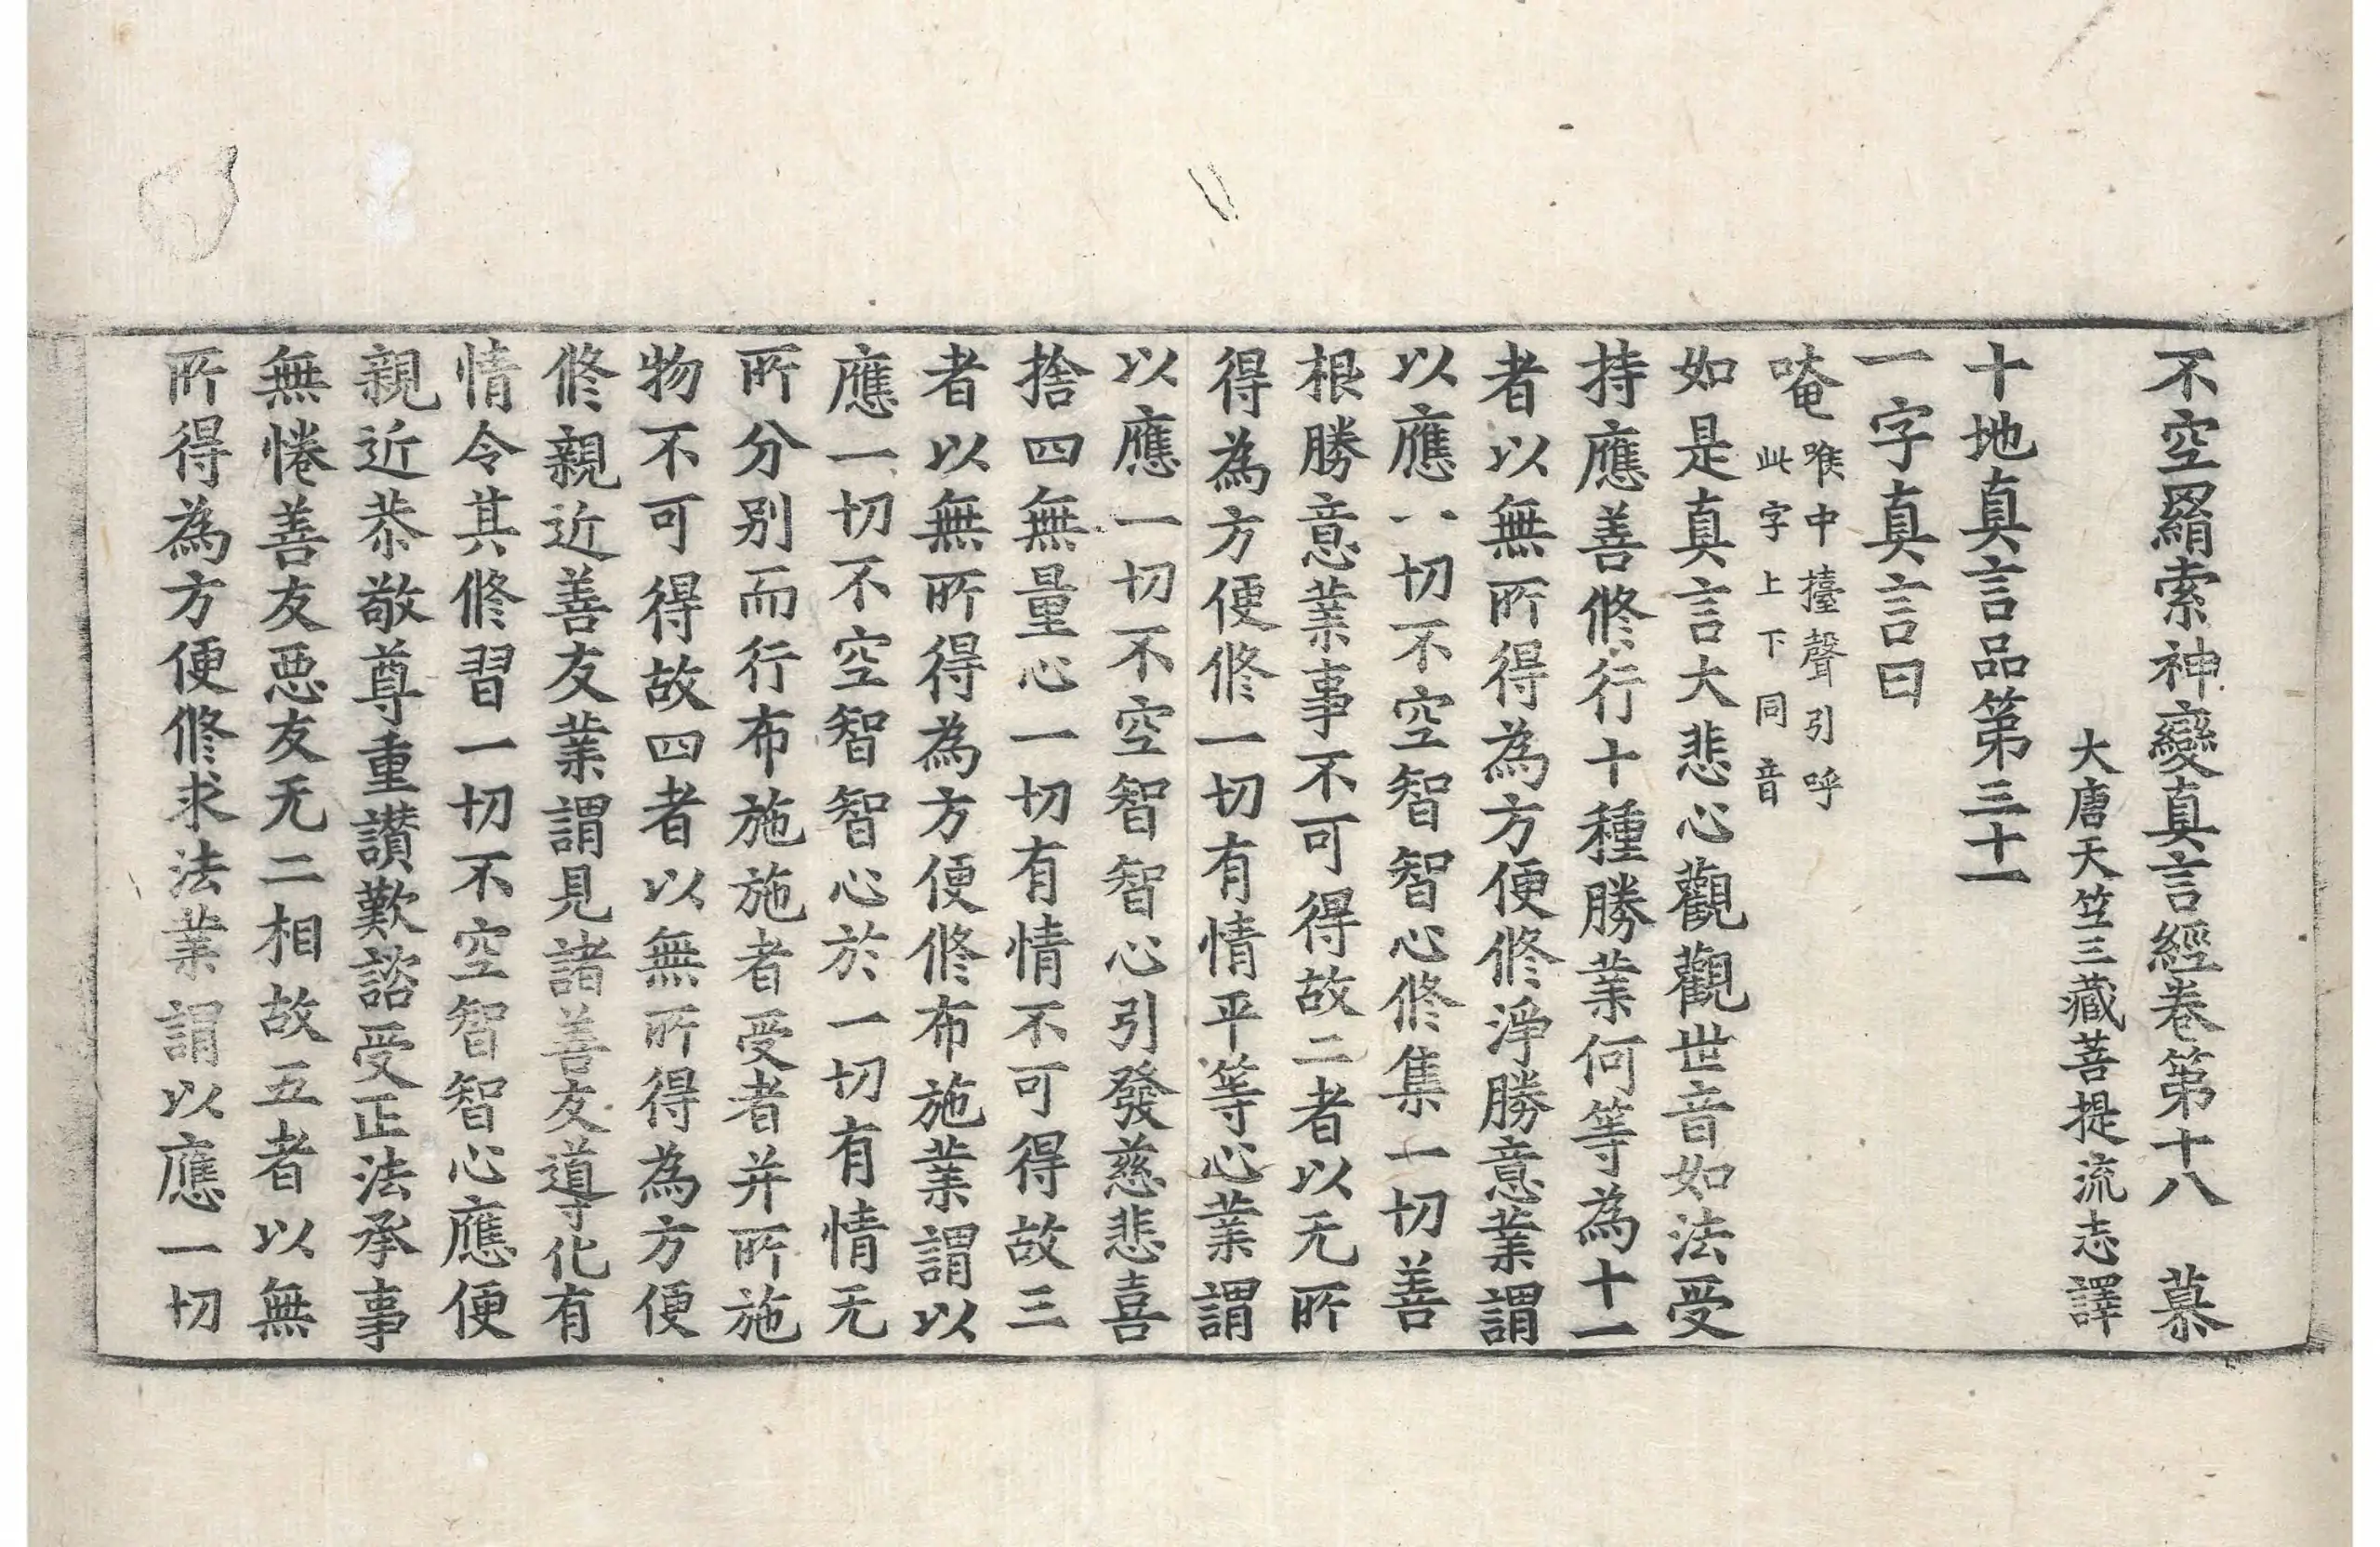 不空羂索神變真言經卷第十八　慕
大唐天竺三藏菩提流志譯
十地真言品第三十一
一字真言曰
唵喉中擡聲引呼
此字上下同音
如是真言大悲心觀觀世音如法受
持應善修行十種勝業何等為十一
者以無所得為方便修淨勝意業謂
以應一切不空智智心修集一切善
根勝意業事不可得故二者以无所
得為方便修一切有情平等心業謂
以應一切不空智智心引發慈悲喜
捨四無量心一切有情不可得故三
者以無所得為方便修布施業謂以
應一切不空智智心於一切有情无
所分別而行布施施者受者并所施
物不可得故四者以無所得為方便
修親近善友業謂見諸善友導化有
情令其修習一切不空智智心應便
親近恭敬尊重讃歎諮受正法承事
無惓善友惡友无二相故五者以無
所得為方便修求法業謂以應一切